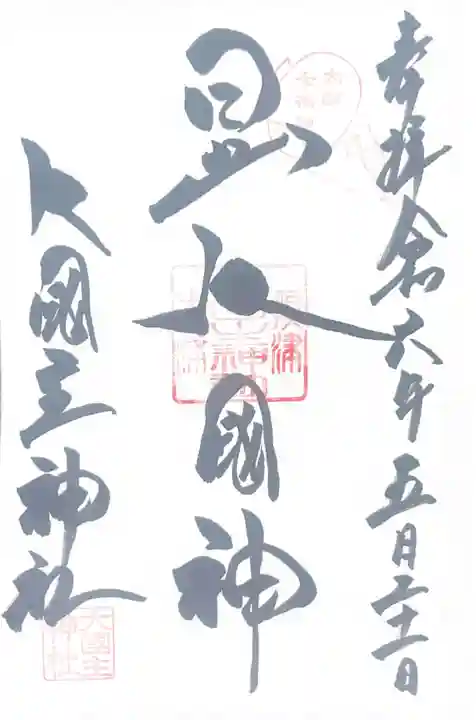 奉拝 令和六年五月二十一日
日出大國神
大國主神社
大國主神社